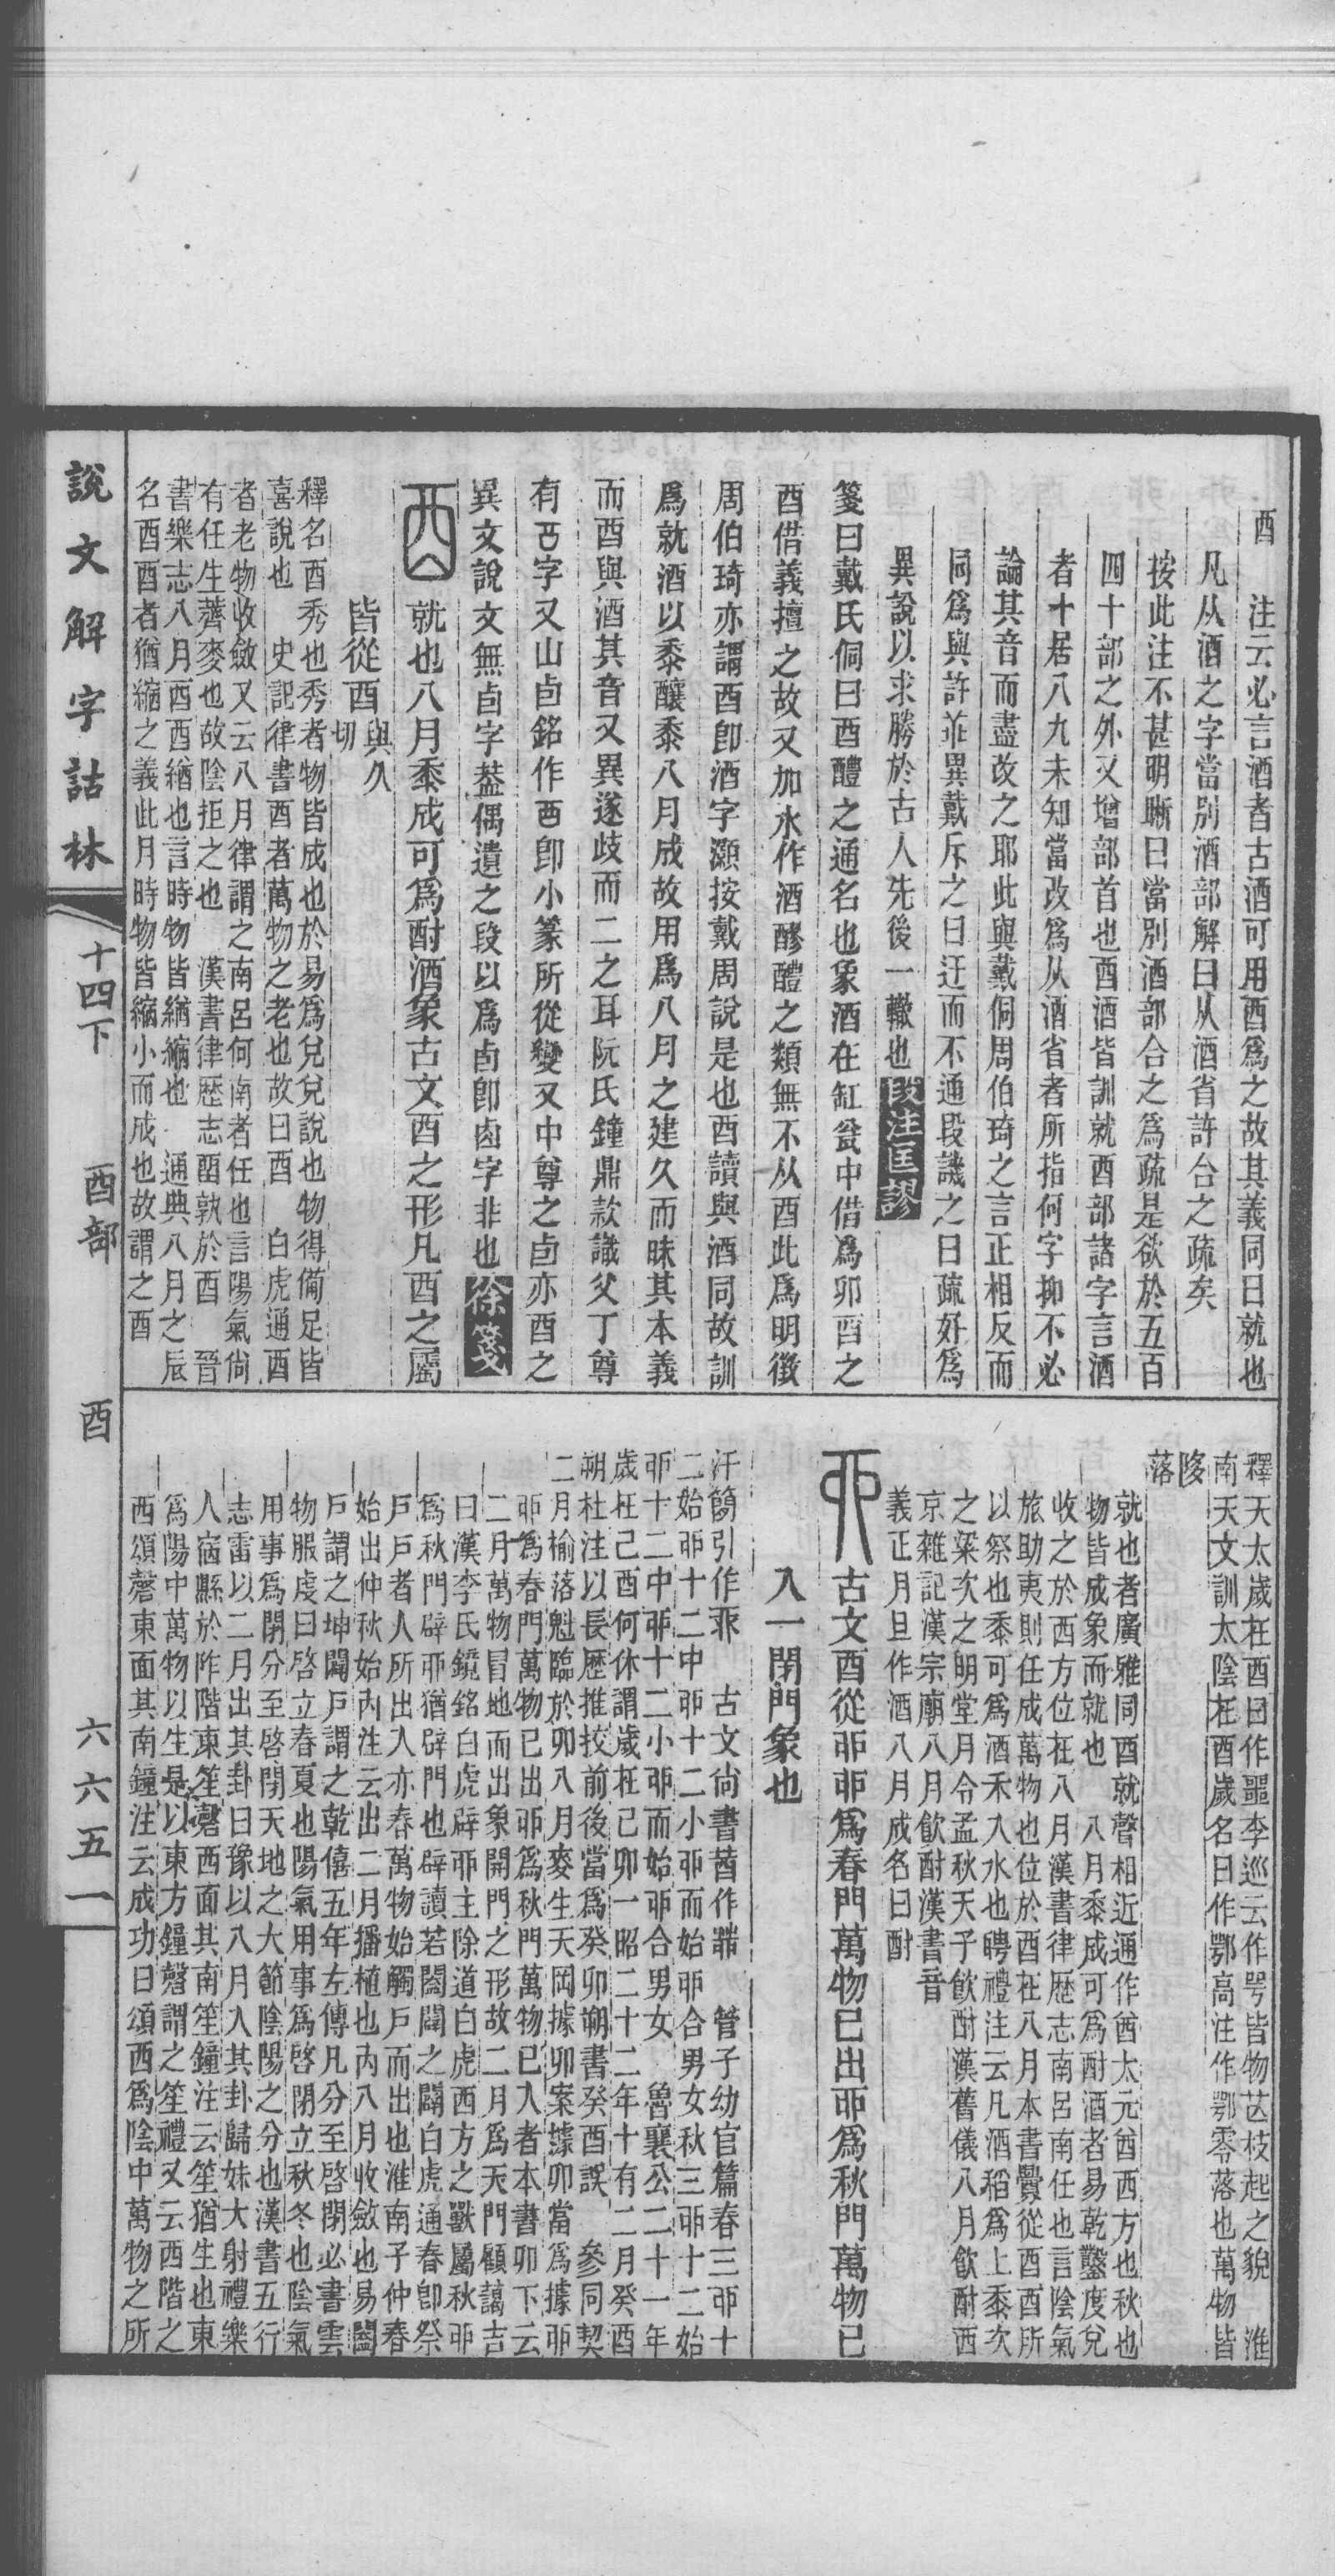 酉　注云必言酒者古酒可用酉爲之故其義同曰就也
凡从酒之字當別酒部解曰从酒省許合之疏矣
按此注不甚明晰曰當別酒部合之爲疏是欲於五百
四十部之外又增部首也酉酒皆訓就酉部諸字言酒
者十居八九未知當改爲从酒省者所指何字抑不必
論其音而盡改之耶此與戴侗周伯琦之言正相反而
同爲與許並異戴斥之曰迂而不通段譏之曰疏好爲
異說以求勝於古人先後一轍也段注匡謬
箋曰戴氏侗曰酉醴之通名也象酒在缸瓮中借爲卯酉之
酉借義擅之故又加水作酒醪醴之類無不从酉此爲明徵
周伯琦亦謂酉卽酒字灝按戴周說是也酉讀與酒同故訓
爲就酒以黍釀黍八月成故用爲八月之建久而昧其本義
而酉與酒其音又異遂歧而二之耳阮氏鐘鼎款識父丁尊
有字又山卣銘作卽小篆所從變又中尊之卣亦酉之
異文說文無卣字葢偶遺之段以爲卣卽卤字非也徐箋
就也八月黍成可爲酎酒象古文酉之形凡酉之屬
皆從酉與久切
釋名酉秀也秀者物皆成也於易爲兌兌說也物得備足皆
喜說也　史記律書酉者萬物之老也故曰酉　白虎通酉
者老物收斂又云八月律謂之南呂何南者任也言陽氣尙
有任生薺麥也故陰拒之也　漢書律歷志畱孰於酉　晉
書樂志八月酉酉緧也言時物皆緧縮也　通典八月之辰
名酉酉者猶縮之義此月時物皆縮小而成也故謂之酉
釋天太歲在酉曰作噩李巡云作咢皆物芒枝起之貌　淮
南天文訓太陰在酉歲名曰作鄂高注作鄂零落也萬物皆
陊落
就也者廣雅同酉就聲相近通作酋太元酋西方也秋也
物皆成象而就也　八月黍成可爲酎酒者易乾鑿度兌
收之於西方位在八月漢書律歷志南呂南任也言陰氣
旅助夷則任成萬物也位於酉在八月本書釁從酉酉所
以祭也黍可爲酒禾入水也聘禮注云凡酒稻爲上黍次
之粱次之明堂月令孟秋天子飲酎漢舊儀八月飲酎西
京雜記漢宗廟八月飲酎漢書音
義正月旦作酒八月成名曰酎
丣古文酉從丣丣爲春門萬物已出丣爲秋門萬物已
入一閉門象也
汗簡引作　古文尙書莤作　管子幼官篇春三丣十
二始丣十二中丣十二小丣而始丣合男女秋三丣十二始
丣十二中丣十二小丣而始丣合男女　魯襄公二十一年
歲在己酉何休謂歲在己卯一昭二十二年十有二月癸酉
朔杜注以長歷推挍前後當爲癸卯朔書癸酉誤　參同契
二月榆落魁臨於卯八月麥生天岡據卯案據卯當爲據丣
丣爲春門萬物已出丣爲秋門萬物已入者本書卯下云
二月萬物冒地而出象開門之形故二月爲天門顧藹吉
曰漢李氏鏡銘白虎辟丣主除道白虎西方之獸屬秋丣
爲秋門辟丣猶辟門也辟讀若闔闢之闢白虎通春卽祭
戶戶者人所出入亦春萬物始觸戶而出也淮南子仲春
始出仲秋始內注云出二月播植也內八月收斂也易闔
戶謂之坤闢戶謂之乾僖五年左傳凡分至啓閉必書雲
物服虔曰啓立春夏也陽氣用事爲啓閉立秋冬也陰氣
用事爲閉分至啓閉天地之大節陰陽之分也漢書五行
志雷以二月出其卦曰豫以八月入其卦歸妹大射禮樂
人宿縣於阼階東笙磬西面其南笙鐘注云笙猶生也東
爲陽中萬物以生是以東方鐘磬謂之笙禮又云西階之
西頌磬東面其南鐘注云成功曰頌西爲陰中萬物之所
說文解字詁林
十四下　酉部　酉
六六五一